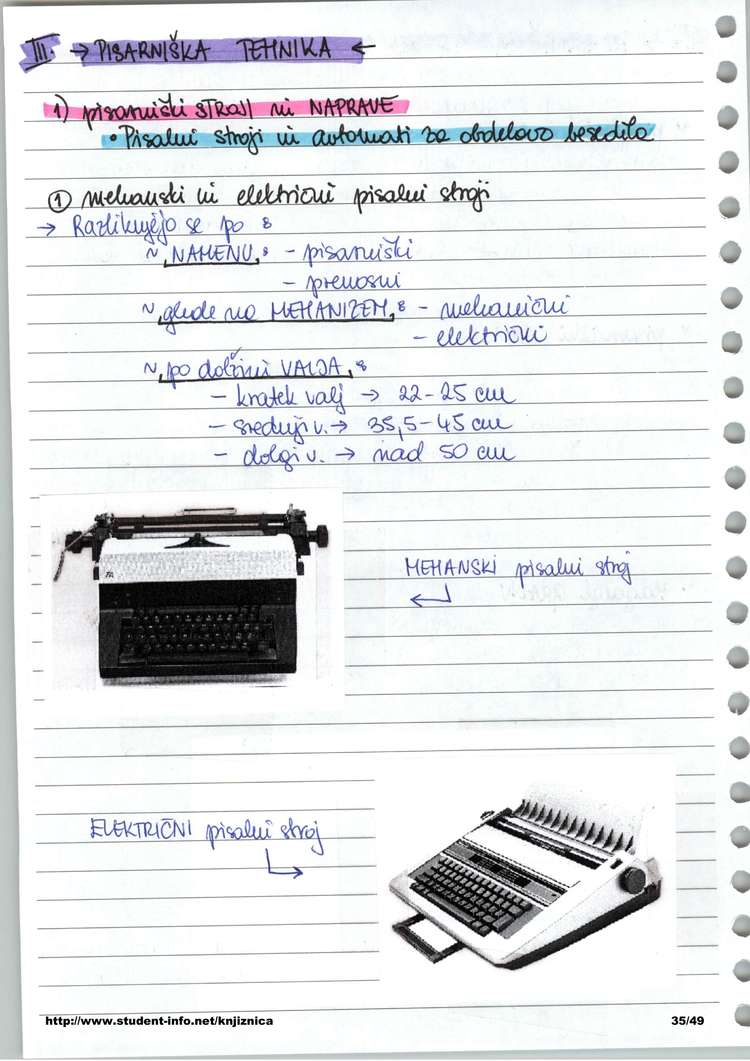 III. → PISARNIŠKA TEHNIKA ←
1) pisarniški STROJI in NAPRAVE
• Pisalni stroji in avtomati za obdelavo besedila
① mehanski in električni pisalni stroji
→ Razlikujejo se po :
~ NAMENU : - pisarniški
- prenosni
~ glede na MEHANIZEM : - mehanični
- električni
~ po dolžini VALJA :
- kratek valj → 22-25 cm
- srednji v. → 35,5-45 cm
- dolgi v. → nad 50 cm
MEHANSKI pisalni stroj
ELEKTRIČNI pisalni stroj
http://www.student-info.net/knjiznica 35/49